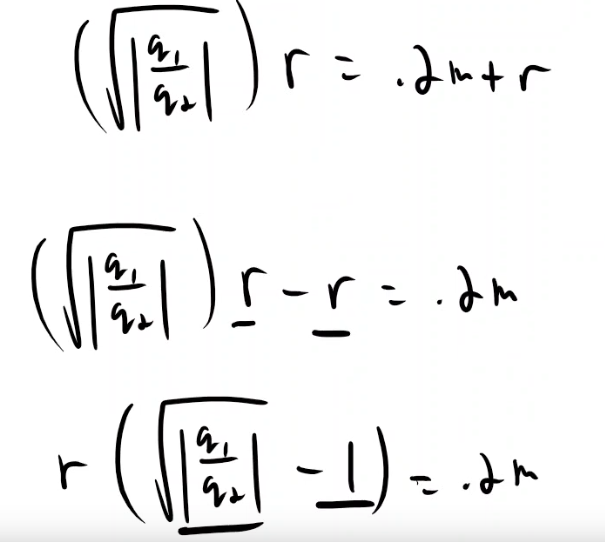 (√|q₁/q₂|) r = .2m + r
(√|q₁/q₂|) r - r = .2m
r (√|q₁/q₂| - 1) = .2m